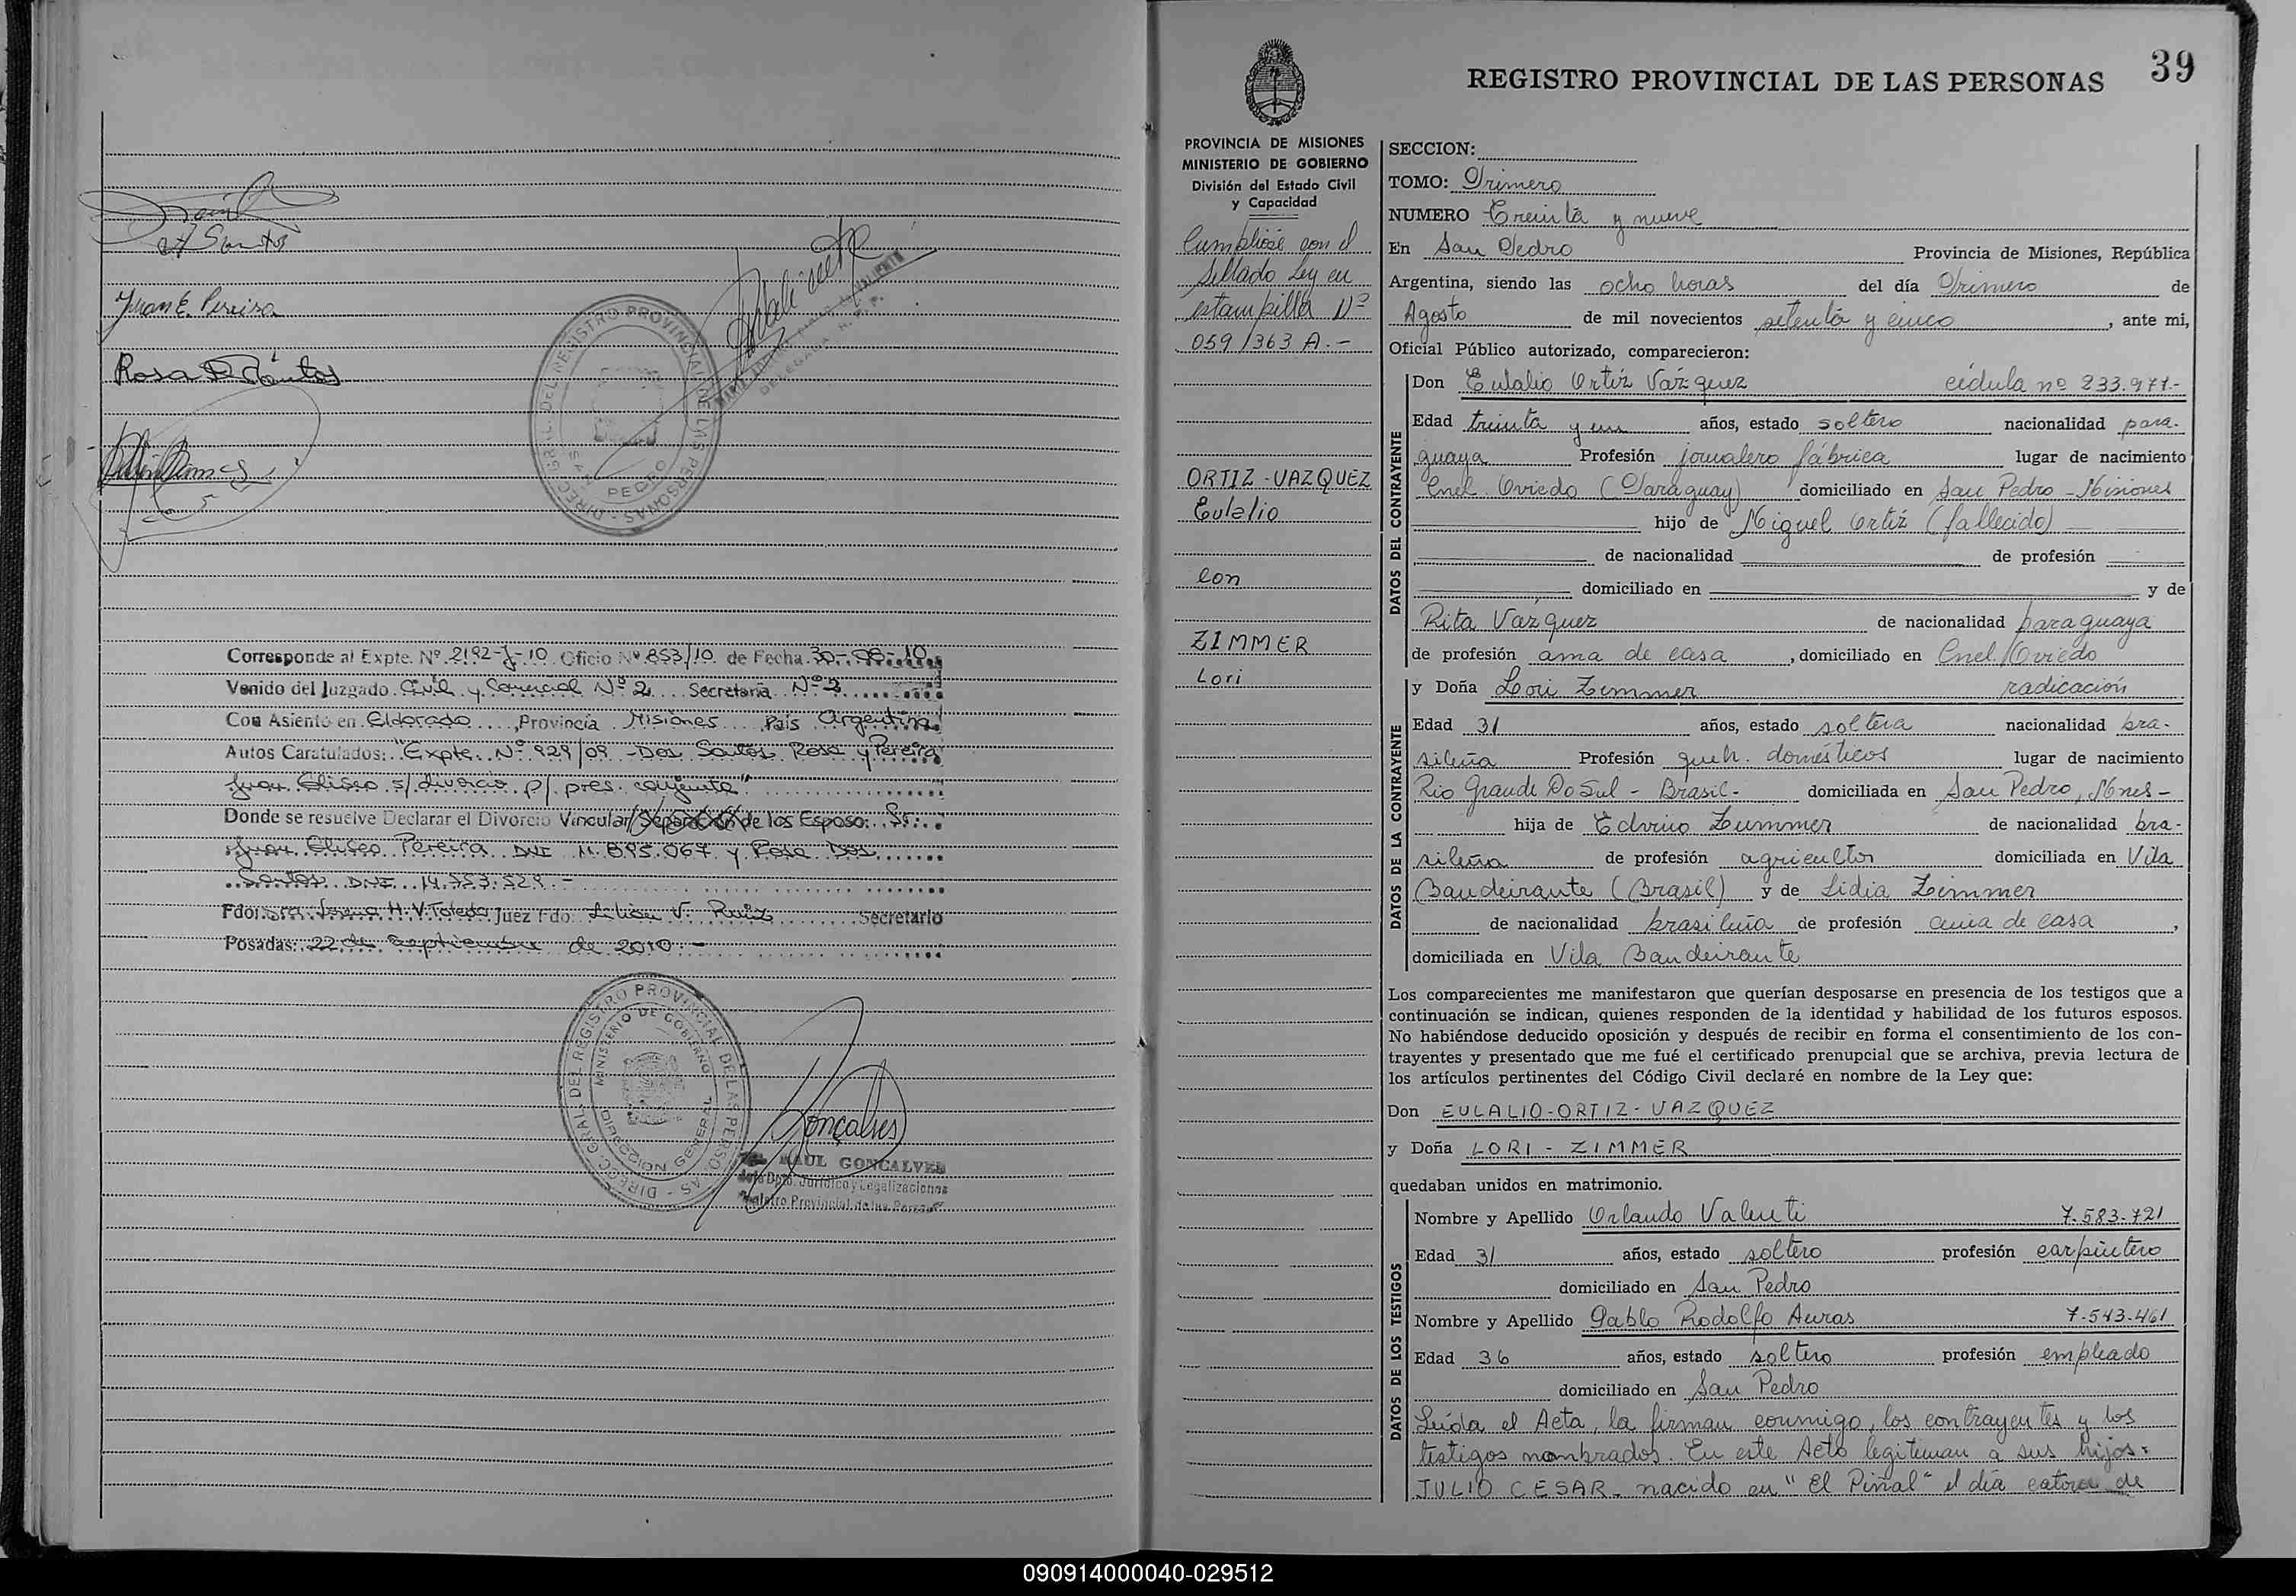 Juan E. Pereira
Rosa D Santos
DIREC. GRAL. DEL REGISTRO PROVINCIAL DE LAS PERSONAS
SAN PEDRO
Corresponde al Expte. Nº 2192-J-10 Oficio Nº 853/10 de Fecha 30-08-10
Venido del Juzgado Civil y Comercial Nº 2 Secretaria Nº 2
Con Asiento en Eldorado, Provincia Misiones País Argentina
Autos Caratulados: "Expte. Nº 929/09 - Dos Santos Rosa y Pereira
Juan Eliseo s/ divorcio p/ pres. conjunta"
Donde se resuelve Declarar el Divorcio Vincular/Separación de los Esposo: Sr.
Juan Eliseo Pereira DNI 11.895.067 y Rosa Dos
Santos DNI 14.353.529.-
Fdo: Sra. H. V. Toledo Juez Fdo: Lilian V. Ruiz Secretario
Posadas: 22 de Septiembre de 2010.-
DIREC. GRAL. DEL REGISTRO PROVINCIAL DE LAS PERSONAS
MINISTERIO DE GOBIERNO
DIRECCION GENERAL
Gonçalves
RAUL GONCALVES
Jefe Dpto. Jurídico y Legalizaciones
Registro Provincial de las Personas
39
REGISTRO PROVINCIAL DE LAS PERSONAS
PROVINCIA DE MISIONES
MINISTERIO DE GOBIERNO
División del Estado Civil
y Capacidad
Cumplióse con el
sellado Ley en
estampilla Nº
059/363 A.-
ORTIZ-VAZQUEZ
Eulalio
con
ZIMMER
Lori
SECCION:
TOMO: Primero
NUMERO Treinta y nueve
En San Pedro Provincia de Misiones, República
Argentina, siendo las ocho horas del día Primero de
Agosto de mil novecientos setenta y cinco, ante mi,
Oficial Público autorizado, comparecieron:
DATOS DEL CONTRAYENTE
Don Eulalio Ortíz Vázquez cédula nº 233.971.-
Edad treinta y un años, estado soltero nacionalidad para-
guaya Profesión jornalero fábrica lugar de nacimiento
Cnel. Oviedo (Paraguay) domiciliado en San Pedro - Misiones
hijo de Miguel Ortíz (fallecido)
de nacionalidad de profesión
domiciliado en y de
Rita Vázquez de nacionalidad paraguaya
de profesión ama de casa, domiciliado en Cnel. Oviedo
DATOS DE LA CONTRAYENTE
y Doña Lori Zimmer radicación
Edad 31 años, estado soltera nacionalidad bra-
sileña Profesión queh. domésticos lugar de nacimiento
Rio Grande Do Sul - Brasil - domiciliada en San Pedro, Mnes-
hija de Edvino Zimmer de nacionalidad bra-
sileña de profesión agricultor domiciliada en Vila
Bandeirante (Brasil) y de Lidia Zimmer
de nacionalidad brasileña de profesión ama de casa,
domiciliada en Vila Bandeirante
Los comparecientes me manifestaron que querían desposarse en presencia de los testigos que a
continuación se indican, quienes responden de la identidad y habilidad de los futuros esposos.
No habiéndose deducido oposición y después de recibir en forma el consentimiento de los con-
trayentes y presentado que me fué el certificado prenupcial que se archiva, previa lectura de
los artículos pertinentes del Código Civil declaré en nombre de la Ley que:
Don EULALIO-ORTIZ-VAZQUEZ
y Doña LORI - ZIMMER
quedaban unidos en matrimonio.
DATOS DE LOS TESTIGOS
Nombre y Apellido Orlando Valenti 7.583.721
Edad 31 años, estado soltero profesión carpintero
domiciliado en San Pedro
Nombre y Apellido Pablo Rodolfo Auras 7.543.461
Edad 36 años, estado soltero profesión empleado
domiciliado en San Pedro
Leída el Acta, la firman conmigo, los contrayentes y los
testigos nombrados. En este Acto legitiman a sus hijos:
JULIO CESAR - nacido en "El Piñal" el día catorce de
090914000040-029512